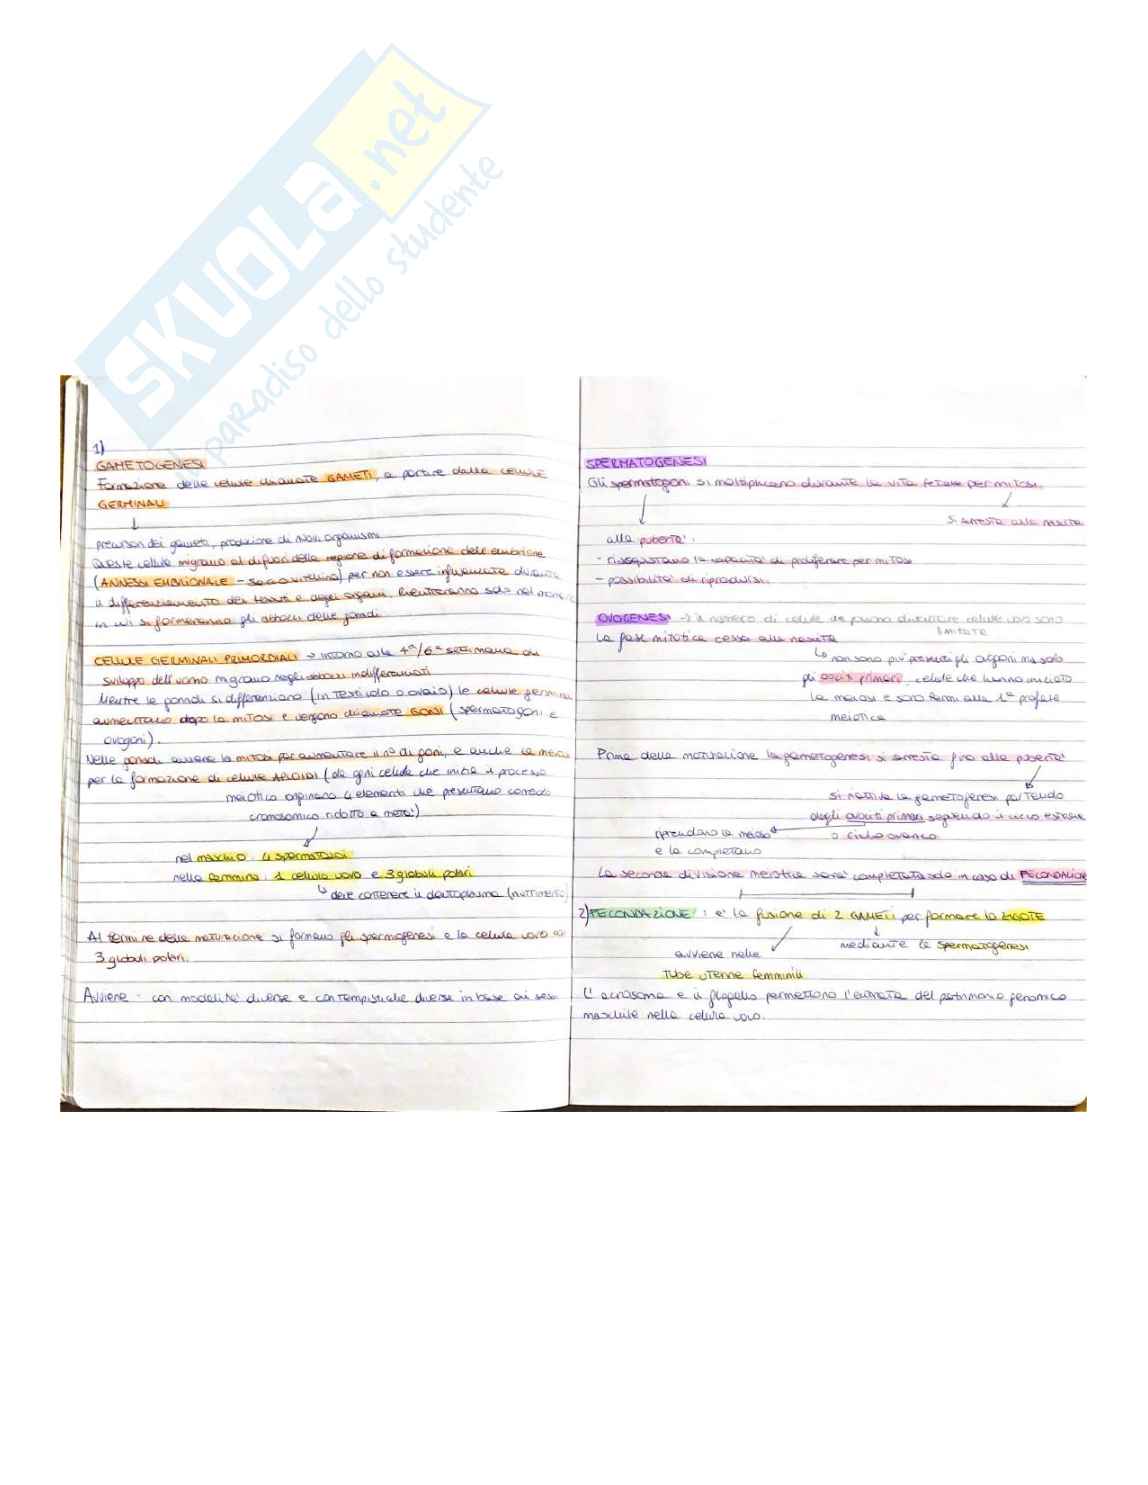 SKUOLA.net
il paradiso dello studente
1)
GAMETOGENESI
Formazione delle cellule chiamate GAMETI, a partire dalla cellule
GERMINALI
↓
precursori dei gameti, produzione di nuovi organismi
Queste cellule migrano al di fuori della regione di formazione dell'embrione
(ANNESSI EMBRIONALE - sacco vitellino) per non essere influenzate durante
il differenziamento dei tessuti e degli organi. Rientreranno solo nel momento
in cui si formeranno gli abbozzi delle gonadi.
CELLULE GERMINALI PRIMORDIALI → intorno alla 4ª/6ª settimana di
sviluppo dell'uomo migrano negli abbozzi indifferenziati
Mentre le gonadi si differenziano (in testicolo o ovaio) le cellule germinali
aumentano dopo la mitosi e vengono chiamate GONI (spermatogoni e
ovogoni).
Nelle gonadi avviene la mitosi per aumentare il n° di goni, e anche la meiosi
per la formazione di cellule APLOIDI (da ogni cellula che inizia il processo
meiotico originano 4 elementi che presentano corredo
cromosomico ridotto a metà)
nel maschio: 4 spermatozoi
nella femmina: 1 cellula uovo e 3 globuli polari
↳ deve contenere il deutoplasma (nutrimento)
Al termine della maturazione si formano gli spermogenesi e la cellula uovo
3 globuli polari.
Avviene: con modalità diverse e con tempistiche diverse in base al sesso
SPERMATOGENESI
Gli spermatogoni si moltiplicano durante la vita fetale per mitosi.
si arresta alla nascita
alla pubertà:
- riacquistano la capacità di proliferare per mitosi
- possibilità di riprodursi.
OVOGENESI → il numero di cellule che possono diventare cellule uovo sono
limitate
La fase mitotica cessa alla nascita
↳ non sono più presenti gli ovogoni ma solo
gli ovociti primari, cellule che hanno iniziato
la meiosi e sono fermi alla 1ª profase
meiotica
Prima della maturazione la gametogenesi si arresta fino alla pubertà
si riattiva la gametogenesi partendo
dagli ovociti primari seguendo il ciclo estrale
riprendono la meiosi o ciclo ovarico
e la completano
La seconda divisione meiotica sarà completata solo in caso di FECONDAZIONE
2) FECONDAZIONE: è la fusione di 2 GAMETI per formare lo ZIGOTE
avviene nelle mediante la spermatogenesi
TUBE UTERINE femminili
L'acrosoma e il flagello permettono l'entrata del patrimonio genomico
maschile nella cellula uovo.